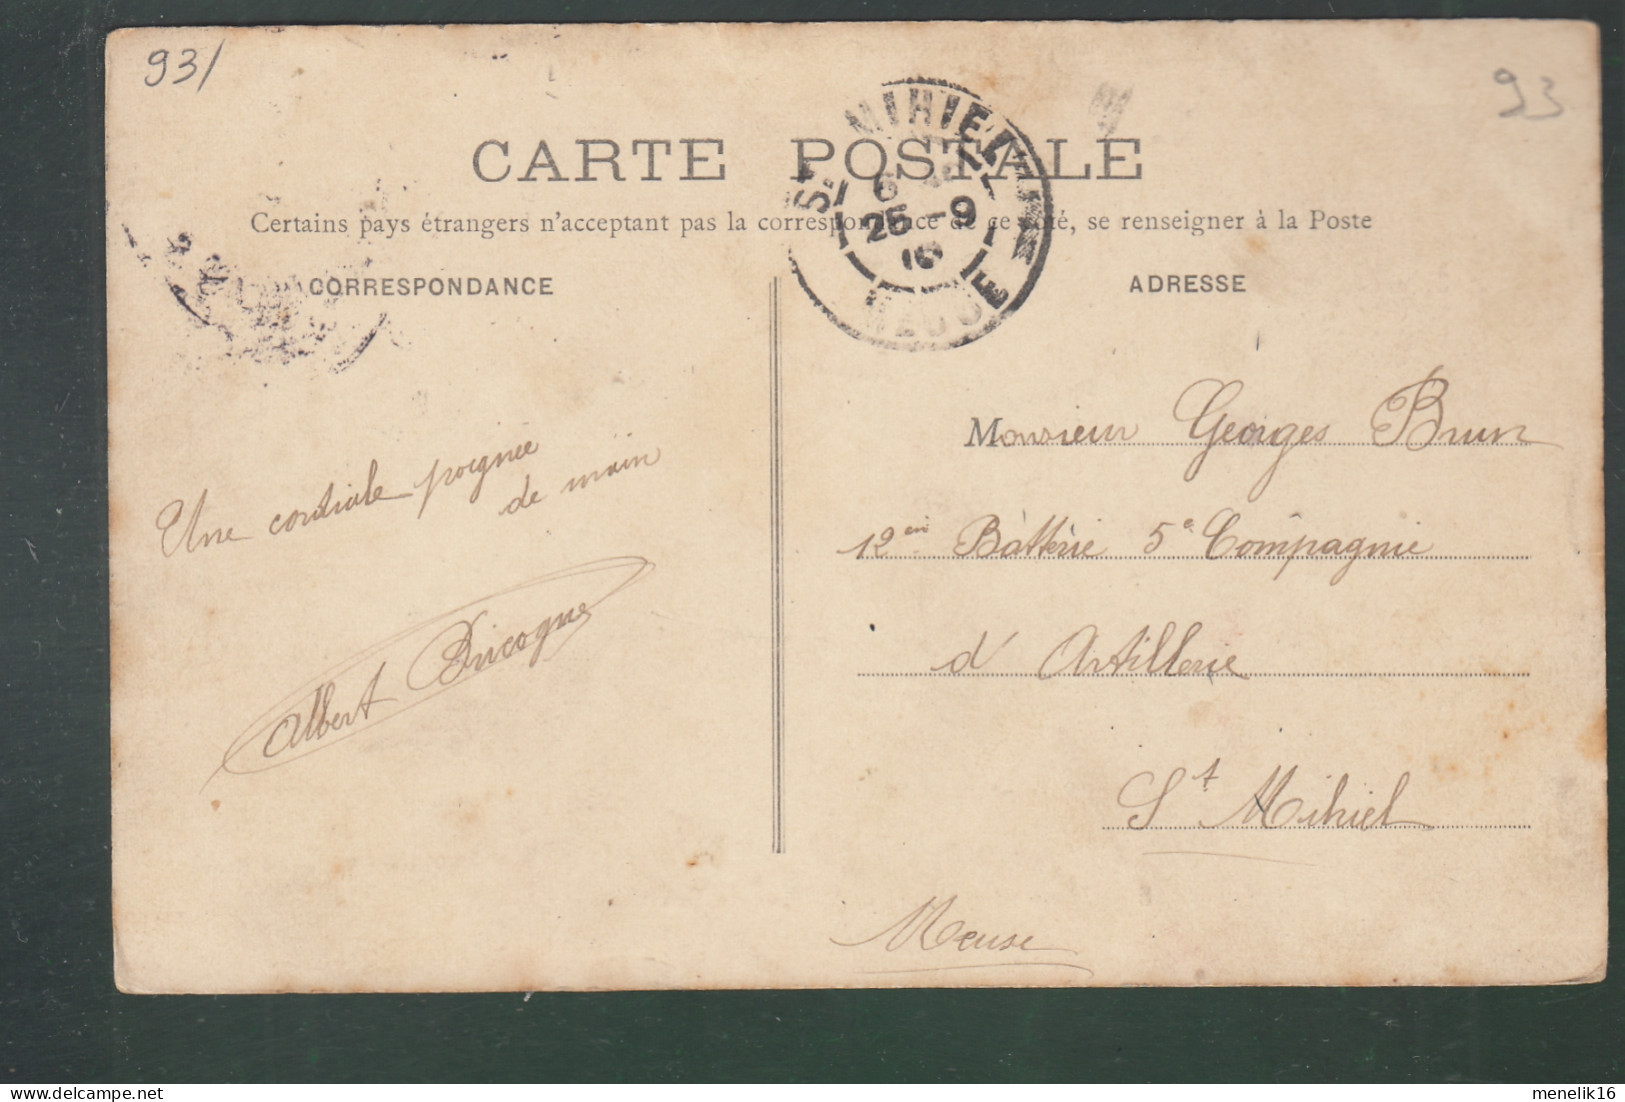 93/
93
CARTE POSTALE
Certains pays étrangers n'acceptant pas la correspondance de ce côté, se renseigner à la Poste
ST MIHIEL
6
25 -9
MEUSE
CORRESPONDANCE
ADRESSE
Une cordiale poignée
de main
Albert Bricogne
Monsieur Georges Brun
12em Battèrie 5e Compagnie
d'Artillerie
St Mihiel
Meuse
menelik16